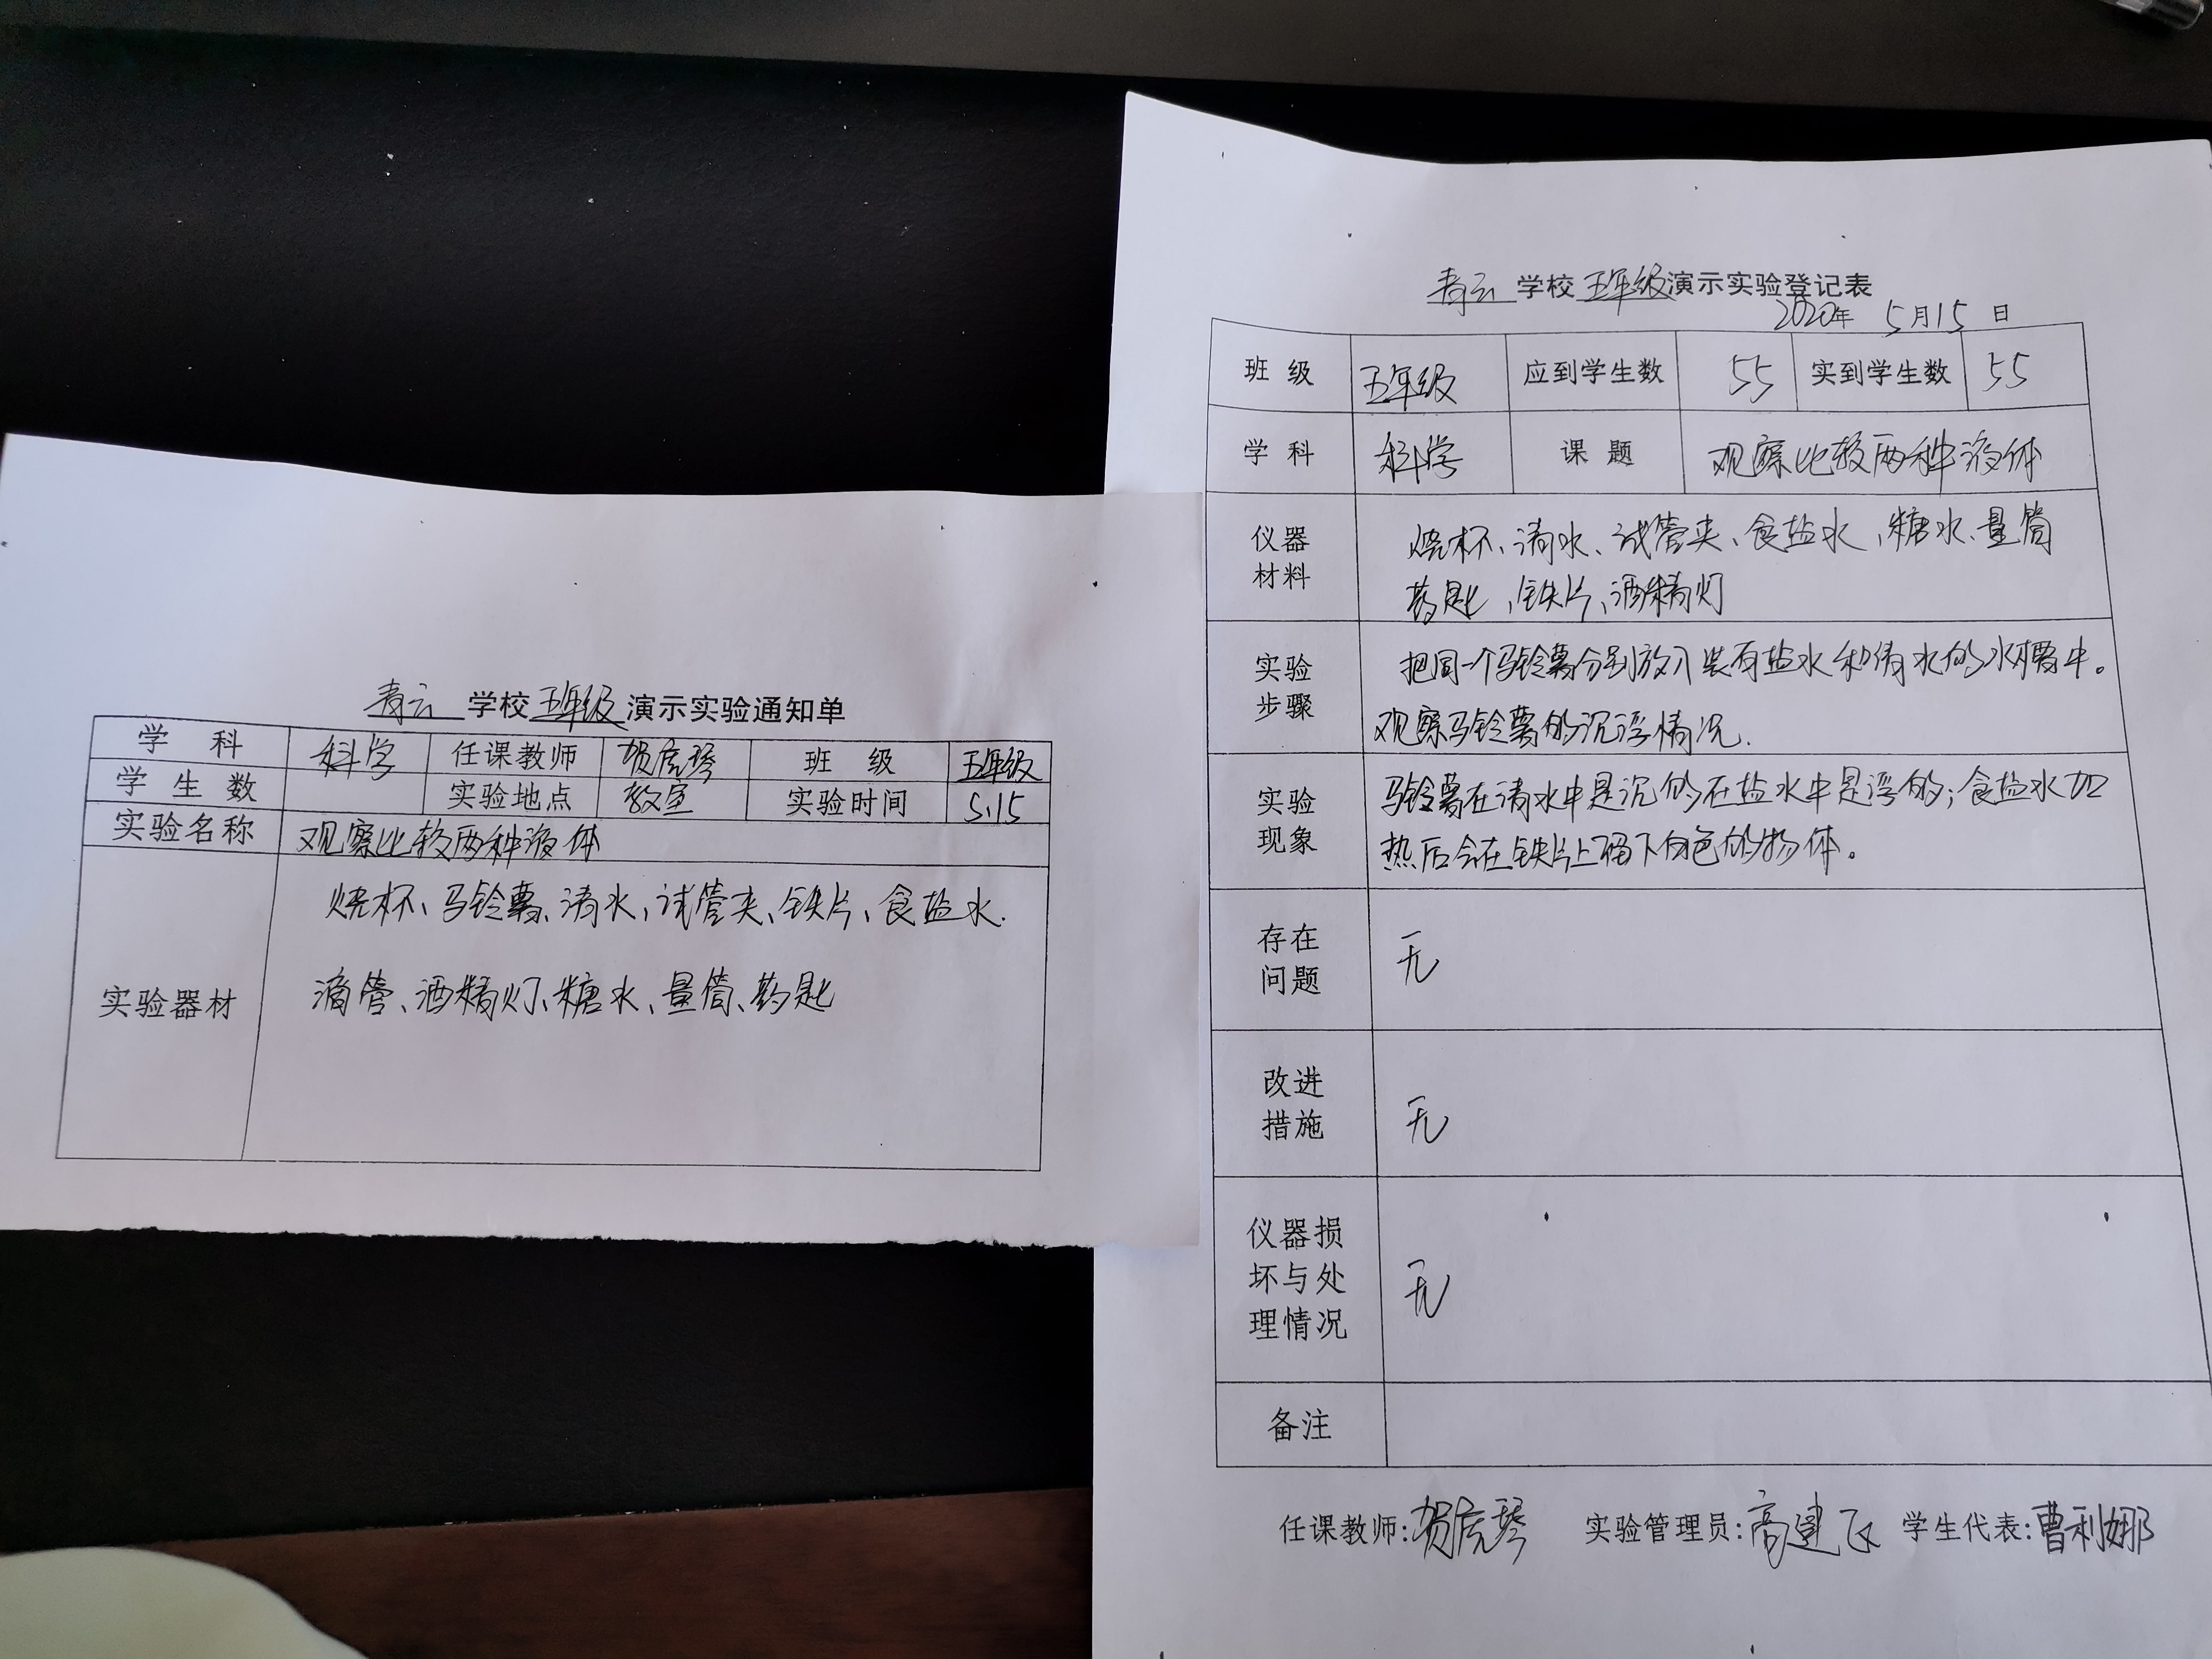 青云 学校 五年级 演示实验通知单
学 科 科学 任课教师 贺虎琴 班 级 五年级
学 生 数 实验地点 教室 实验时间 5.15
实验名称 观察比较两种液体
实验器材
烧杯、马铃薯、清水、试管夹、铁片、食盐水.
滴管、酒精灯、糖水、量筒、药匙
青云 学校 五年级 演示实验登记表
2020年 5月15 日
班 级 五年级 应到学生数 55 实到学生数 55
学 科 科学 课 题 观察比较两种液体
仪器
材料
烧杯、清水、试管夹、食盐水、糖水、量筒
药匙、铁片、酒精灯
实验
步骤
把同一个马铃薯分别放入装有盐水和清水的水槽中。
观察马铃薯的沉浮情况.
实验
现象
马铃薯在清水中是沉的在盐水中是浮的;食盐水加
热后会在铁片上留下白色的物体。
存在
问题
无
改进
措施
无
仪器损
坏与处
理情况
无
备注
任课教师:贺虎琴 实验管理员:高建飞 学生代表:曹利娜